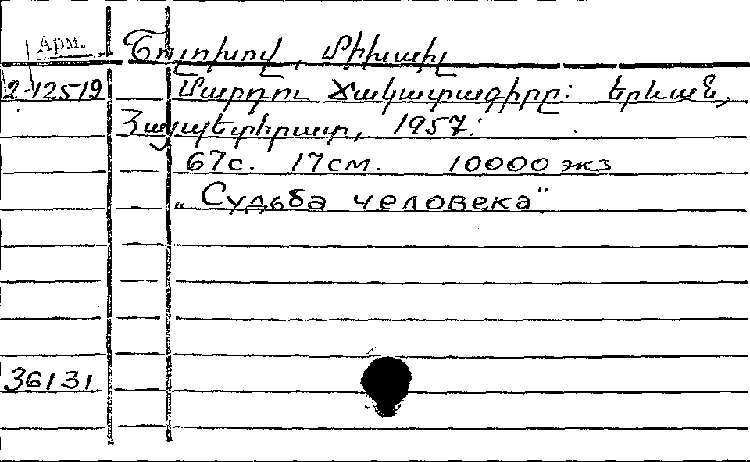 Арм.
Շոլոխով, Միխաիլ
2-12519 Մարդու ճակատագիրը: Երևան,
Հայպետհրատ, 1957:
67с. 17см. 10000 экз
„Судьба человека"
36131